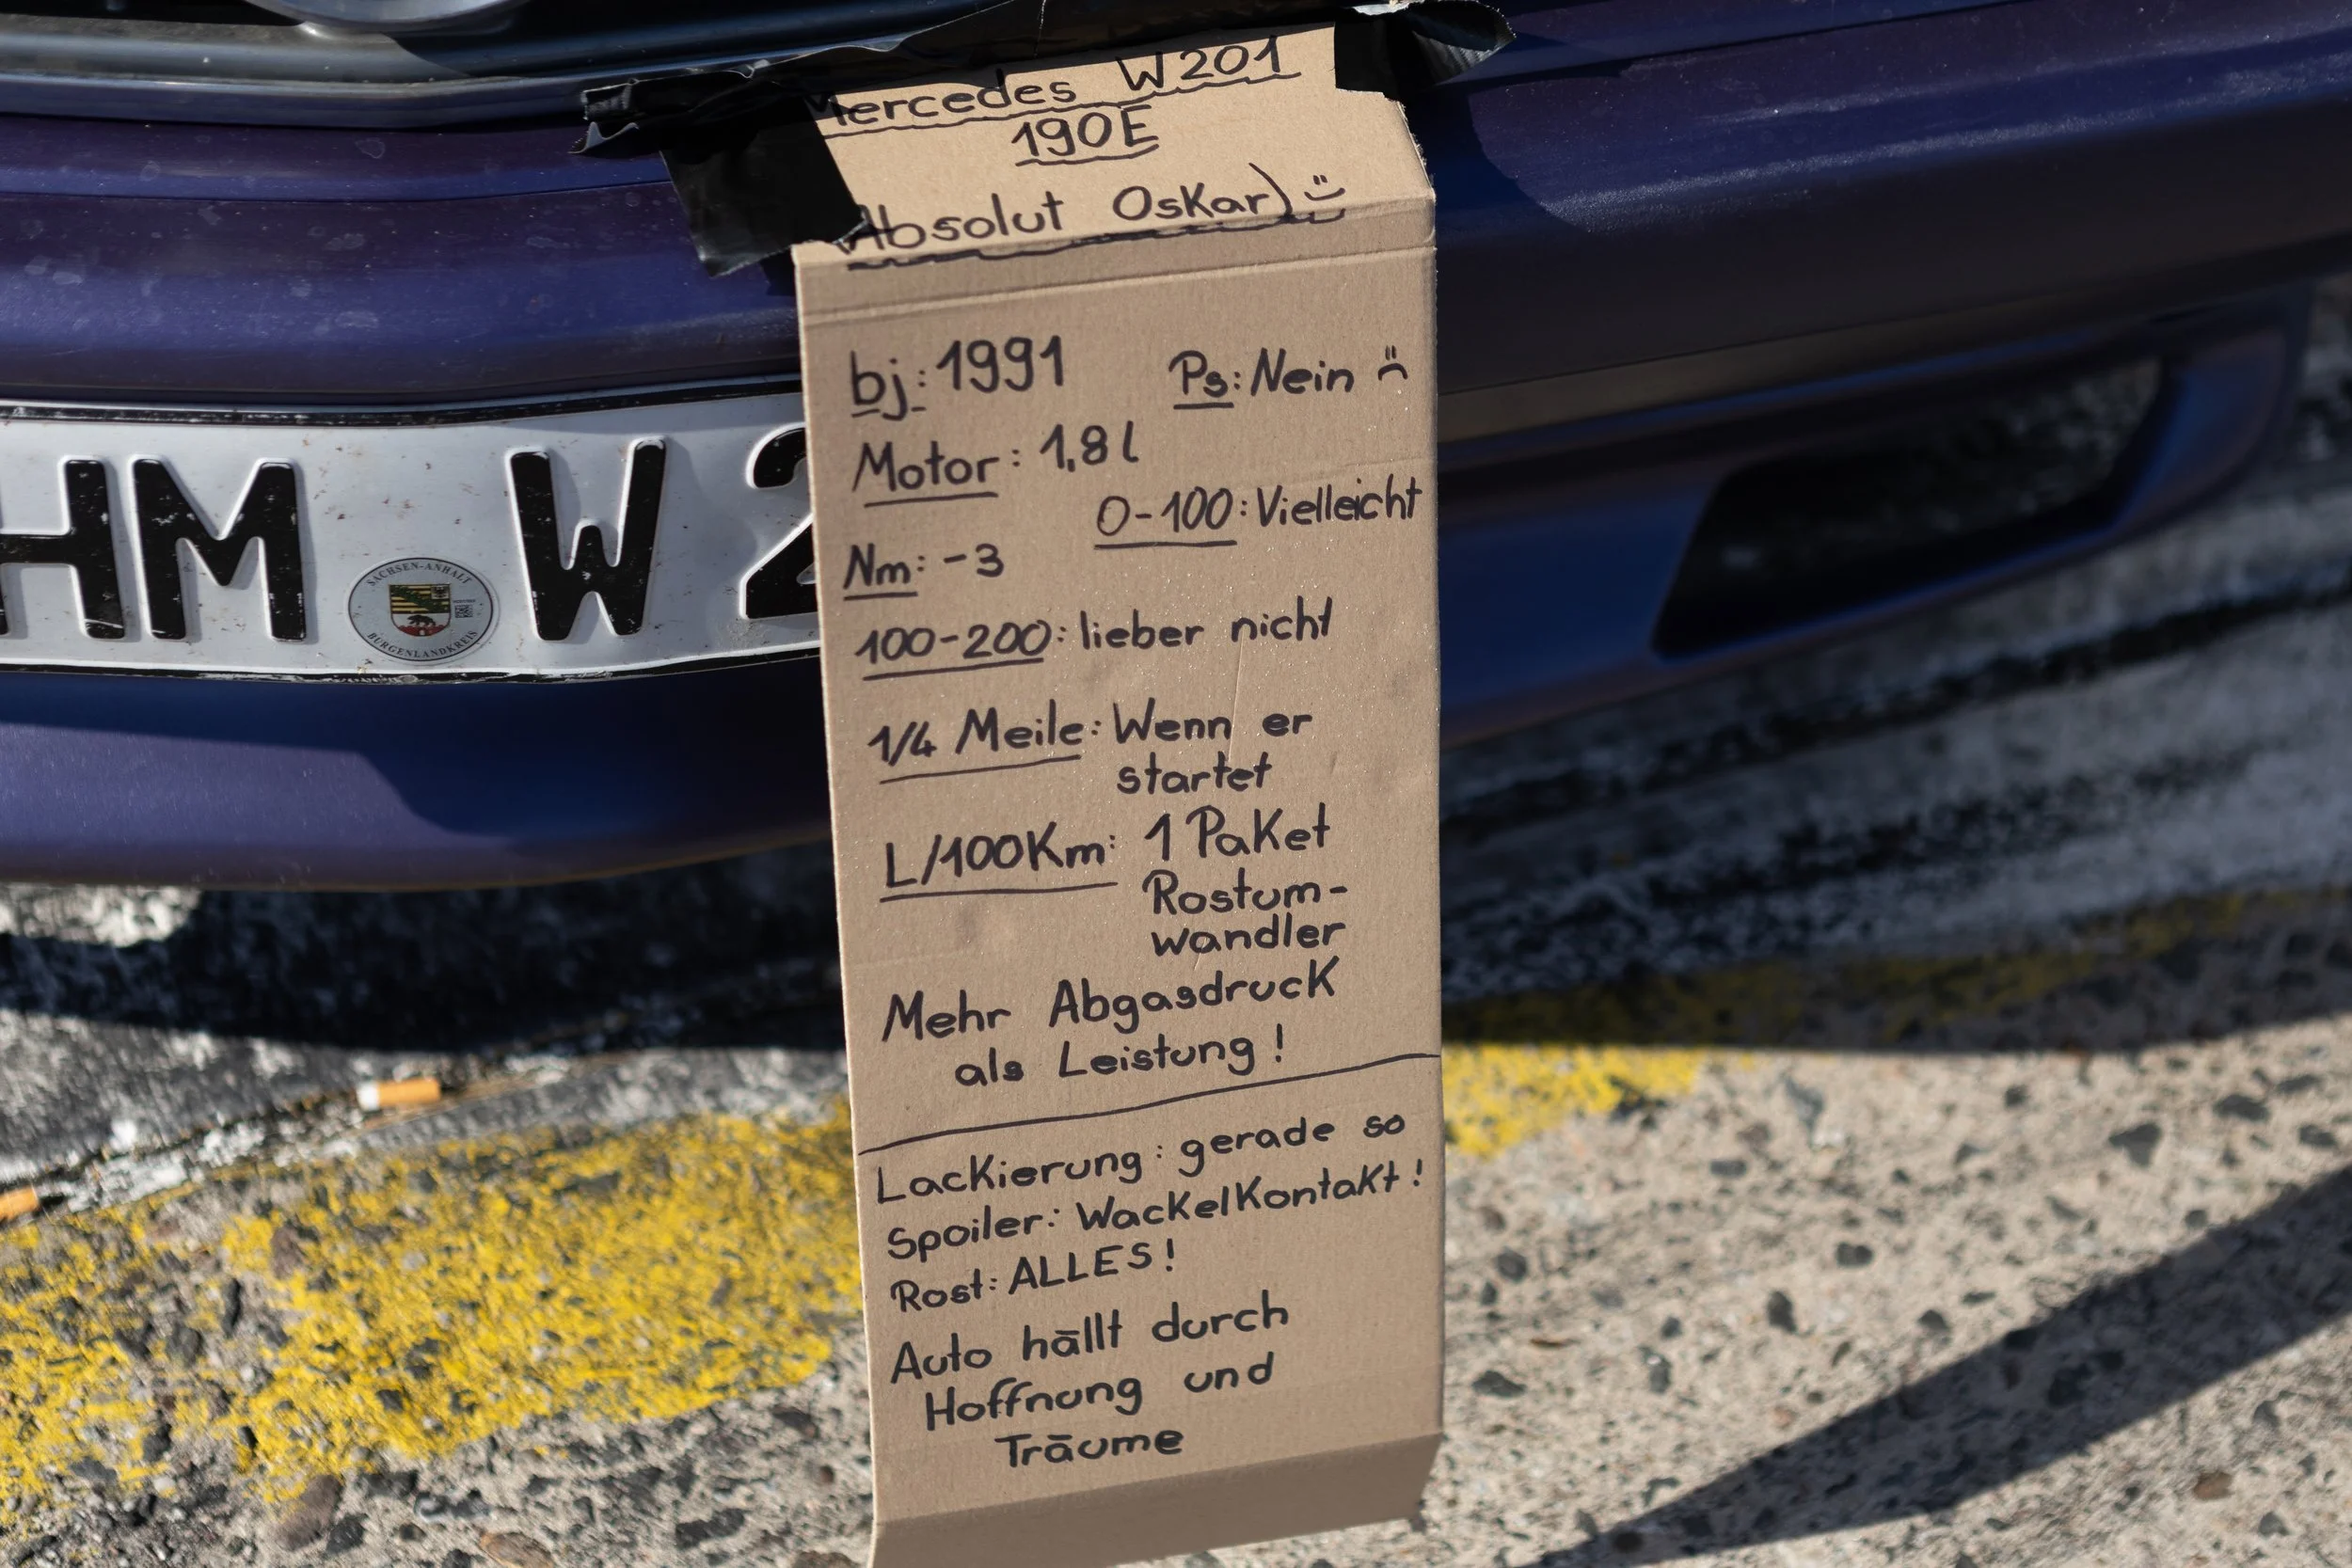 Mercedes W201
190E
Absolut Oskar) :)
bj: 1991 Ps: Nein :(
Motor: 1,8l
0-100: Vielleicht
Nm: -3
100-200: lieber nicht
1/4 Meile: Wenn er
startet
L/100Km: 1 Paket
Rostum-
wandler
Mehr Abgasdruck
als Leistung!
Lackierung: gerade so
Spoiler: Wackelkontakt!
Rost: ALLES!
Auto hällt durch
Hoffnung und
Träume
HM W 2
SACHSEN-ANHALT
BURGENLANDKREIS